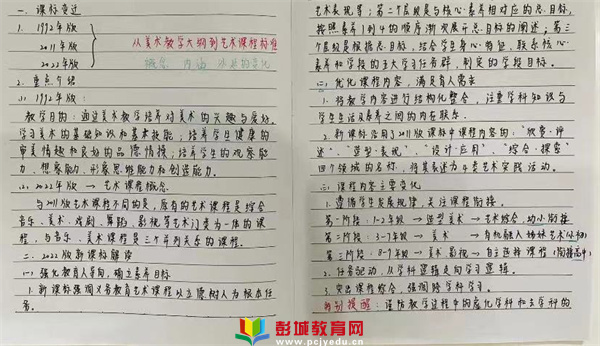 一. 课标变迁
1. 1992年版
2011年版
2022年版
从美术教学大纲到艺术课程标准
概念 内涵 涉及的变化
2. 重点介绍
(1). 1992年版:
教学目的: 通过美术教学培养对美术的兴趣与爱好,
学习美术的基础知识和基本技能; 培养学生健康的
审美情趣和良好的品德情操; 培养学生的观察能
力, 想象能力, 形象思维能力和创造能力。
(2). 2022年版 → 艺术课程概念
与2011版艺术课程不同的是, 原有的艺术课程是综合
音乐、美术、戏剧、舞蹈、影视等艺术门类为一体的课
程, 与音乐、美术课程是三个并列关系的课程。
二. 2022版新课标解读
(一) 强化教育人导向, 确立素养目标
1. 新课标强调义务教育艺术课程以立德树人为根本任
务。
艺术表现等; 第二个层级是与核心素养相对应的总目标,
按照素养1到4的顺序渐次展开总目标的阐述; 第三
个层级是根据总目标, 结合学生身心特征, 联系核心
素养和学段的五大学习任务群, 制定的学段目标。
(二) 优化课程内容, 满足育人需求
1. 将教学内容进行结构化整合, 注重学科知识与
学生生活及素养之间的内在联系。
2. 新课标沿用了2011版课标中课程内容的: “欣赏·评
述”、“造型·表现”、“设计·应用”、“综合·探索”
四个领域的名称, 将其表述为4类艺术实践活动。
三. 课程内容主要变化
1. 遵循学生发展规律, 关注课程衔接。
第一阶段: 1-2年级 → 造型美术 → 艺术综合, 幼小衔接
第二阶段: 3-7年级 → 美术 → 有机融入姊妹艺术(小初)
第三阶段: 8-9年级 → 美术.影视 → 自主选择课程(衔接高中)
2. 任务驱动, 从学科逻辑走向学习逻辑。
3. 突出课程综合, 强调跨学科学习。
特别提醒: 谨防教学过程中的虚化学科和去学科的
彭城教育网
www.pcjyedu.cn